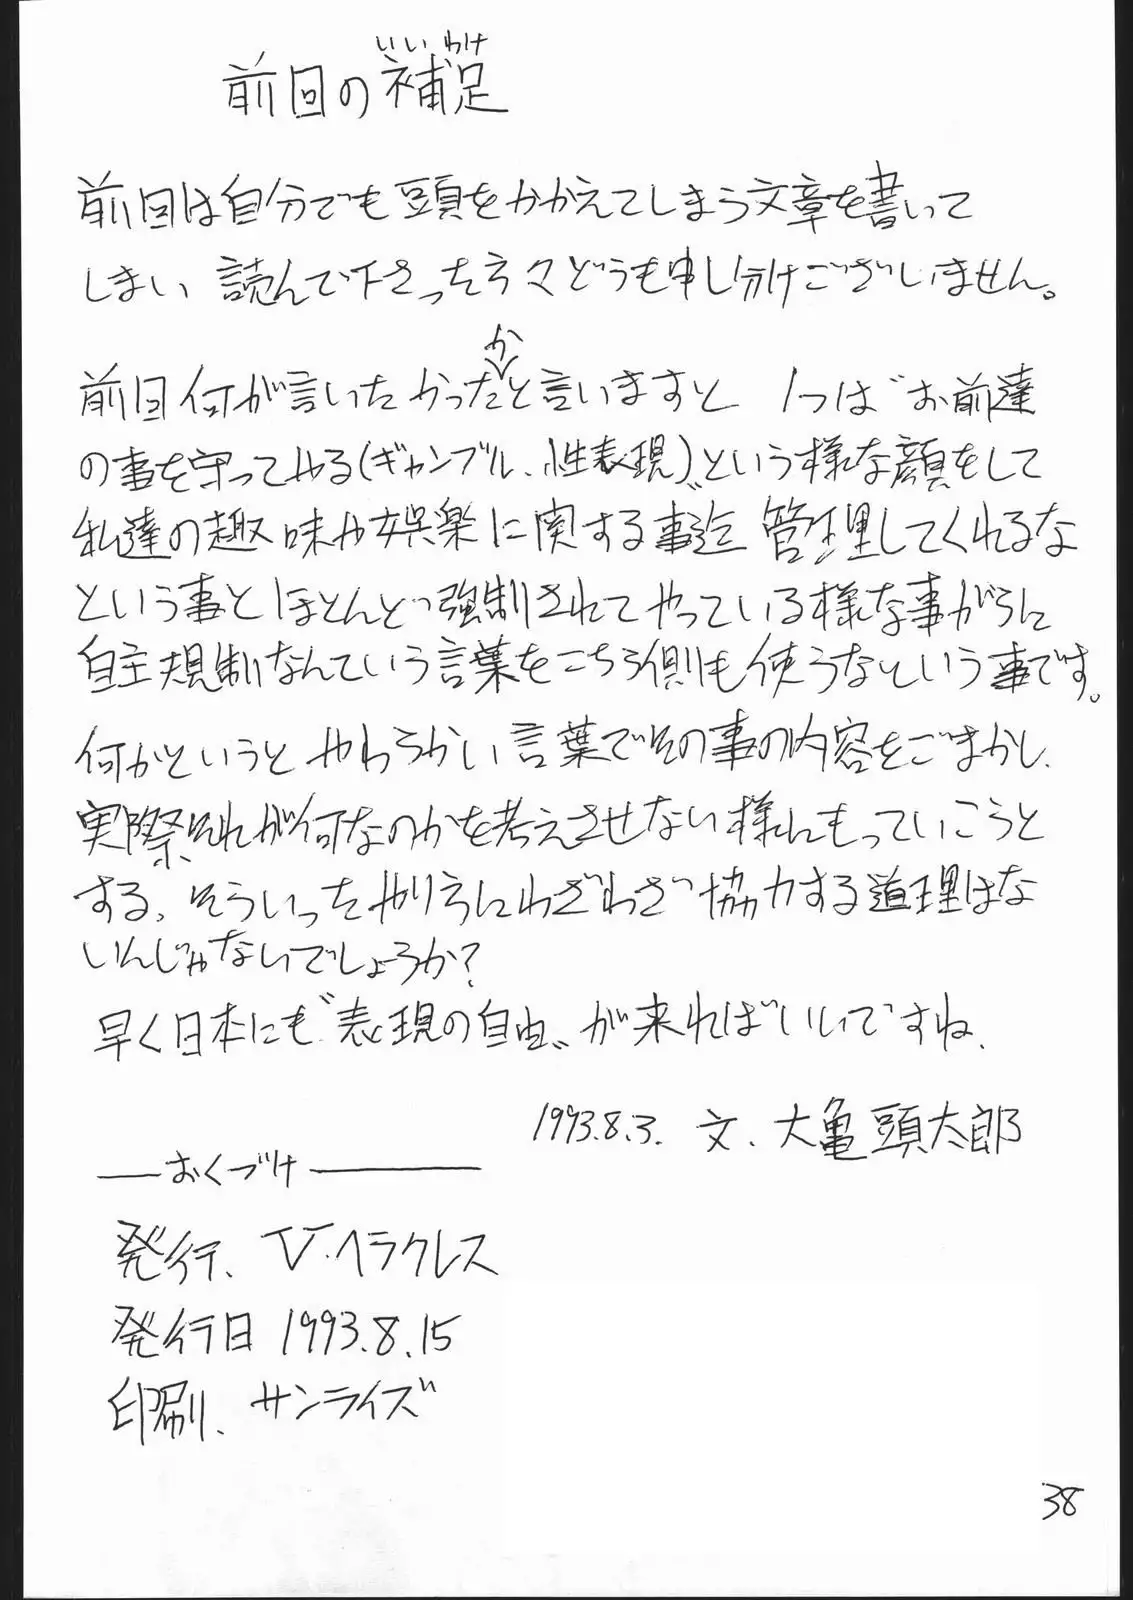 いいわけ
前回の補足
前回は自分でも頭をかかえてしまう文章を書いて
しまい、読んで下さった方々どうも申し分けございません。
か
前回何が言いたかったと言いますと 1つは〝お前達
の事を守ってやる(ギャンブル、性表現)〟という様な顔をして
私達の趣味や娯楽に関する事迄管理してくれるな
という事と ほとんど強制されてやっている様な事がらに
自主規制なんていう言葉をこちら側も使うなという事です。
何かというと やわらかい言葉でその事の内容をごまかし、
実際それが何なのかを考えさせない様にもっていこうと
する、そういったやり方にわざわざ協力する道理はな
いんじゃないでしょうか?
早く日本にも〝表現の自由〟が来ればいいですね、
1993.8.3. 文、大亀頭太郎
おくづけ
発行、V・ヘラクレス
発行日 1993.8.15
印刷、サンライズ
38